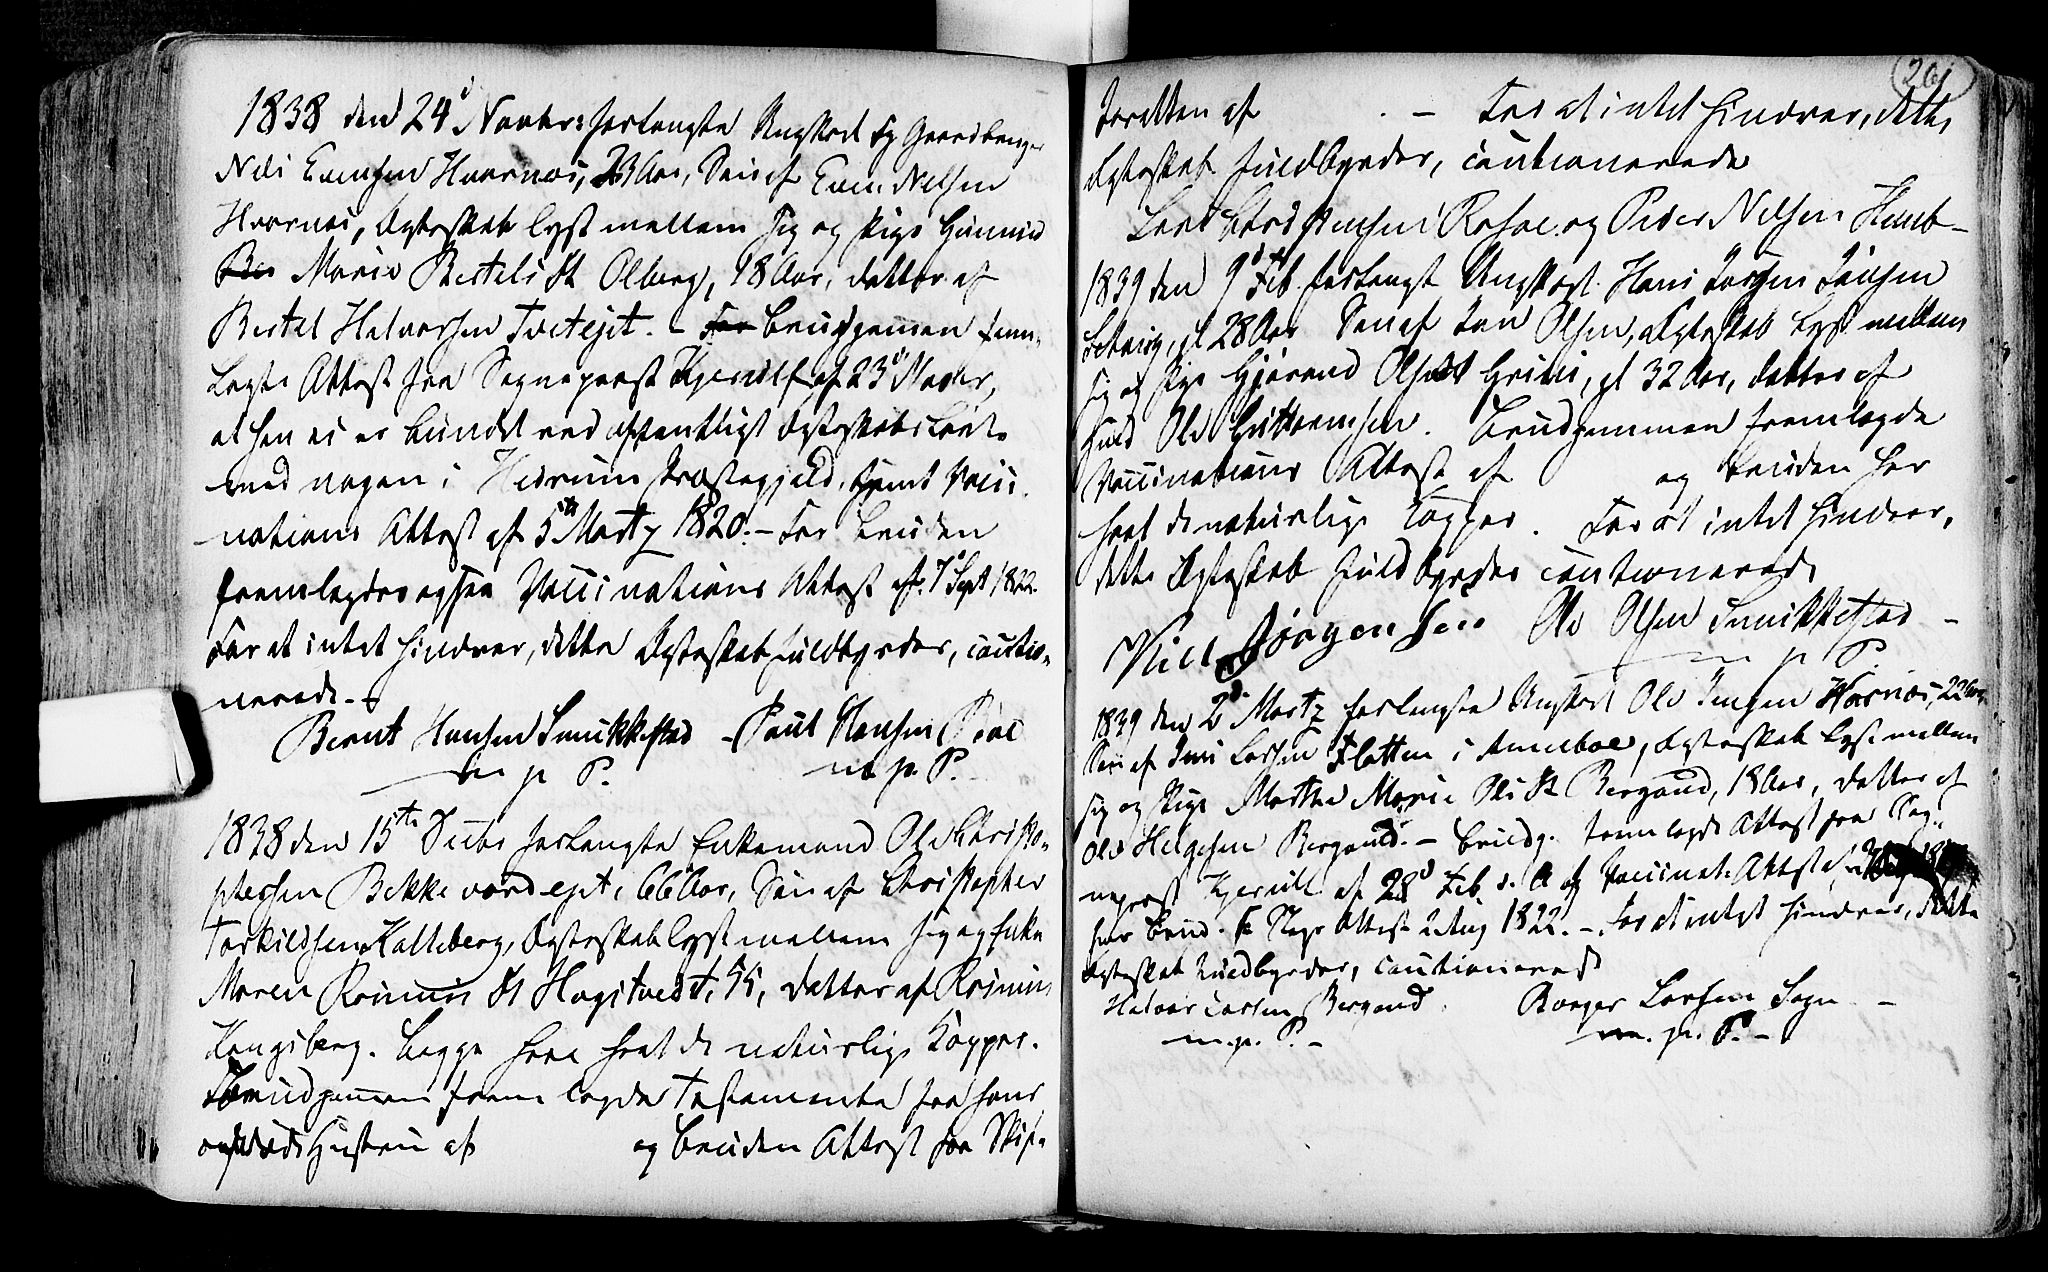 1838 den 24d Novbr: forlangte Ungkarl og Gaardbruger
Nils Evensen Hvarnes, 23 Aar, Søn af Even Nilsen
Hvarnes, Ægteskab lyst mellem sig og Pige Gunnild
Ber Marie Bertels Dt Olberg, 18 Aar, datter af
Bertel Halvorsen Tvetejet. - For Brudgommen frem-
lagte Attest fra Sognepræst Kjerulf af 23d Novbr,
at han ei er bundet ved offentligt Ægteskabs Løfte
med nogen i Hedrum Præstegjeld, samt Vacci-
nations Attest af 5te Martz 1820. - For Bruden
fremlagdes ogsaa Vaccinations Attest af 7 Sept 1822.
For at intet hindrer, dette Ægteskab fuldbyrdes, cautio-
nerede -
Bernt Hansen Smukkestad - Paul Hansen Bøe
m p P. m. p. P.
1838 den 15de Decbr forlangte Enkemand Ole Christo-
phersen Bekkevardejet, 66 Aar, Søn af Christopher
Torkildsen Kalleberg, Ægteskab lyst mellem sig og Enke
Maren Rasmus Dt Hogstvedt, 55, datter af Rasmus
Kongsberg. Begge have havt de naturlige Kopper.
Brudgommen fremlagde Testamente fra hans
afdøde Hustru af og Bruden Attest fra Skif-
201
teretten af . - For at intet hindrer, dette
Ægteskab fuldbyrdes, cautionerede
Lars Christensen Røsae og Peder Nilsen Haab-
1839 den 9d Feb. forlangte Ungkarl Hans Jørgen Jansen
gl 28 Aar Søn af Jan Olsen, Ægteskab lyst mellem
sig og Pige Gjørand Olsdt Grini, gl 32 Aar, datter af
Huusmd Ole Guttormsen. Brudgommen fremlagde
Vaccinations Attest af og Bruden har
havt de naturlige Kopper. For at intet hindrer,
dette Ægteskab fuldbyrdes cautionerede
Niels Jørgensen Ole Olsen Smukkestad -
m p P.
1839 den 2d Martz forlangte Ungkarl Ole Jensen Hvarnes, 22 Aar,
Søn af Jens Larsen Flatten i Ammeboe, Ægteskab lyst mellem
sig og Pige Marthe Marie Ols Dt Bergand, 18 Aar, datter af
Ole Helgesen Bergand. - Brudg. fremlagde Attest fra Sog-
nepræst Kjerulf af 28d Feb. d. A og Vaccinat. Attest af
har Brud. Attest 2 Aug 1822. - For at intet hindrer, dette
Ægteskab fuldbyrdes, cautionerede
Halvor Larsen Bergand. Borger Larsen Sogn -
m. p. P. - m. p. P. -